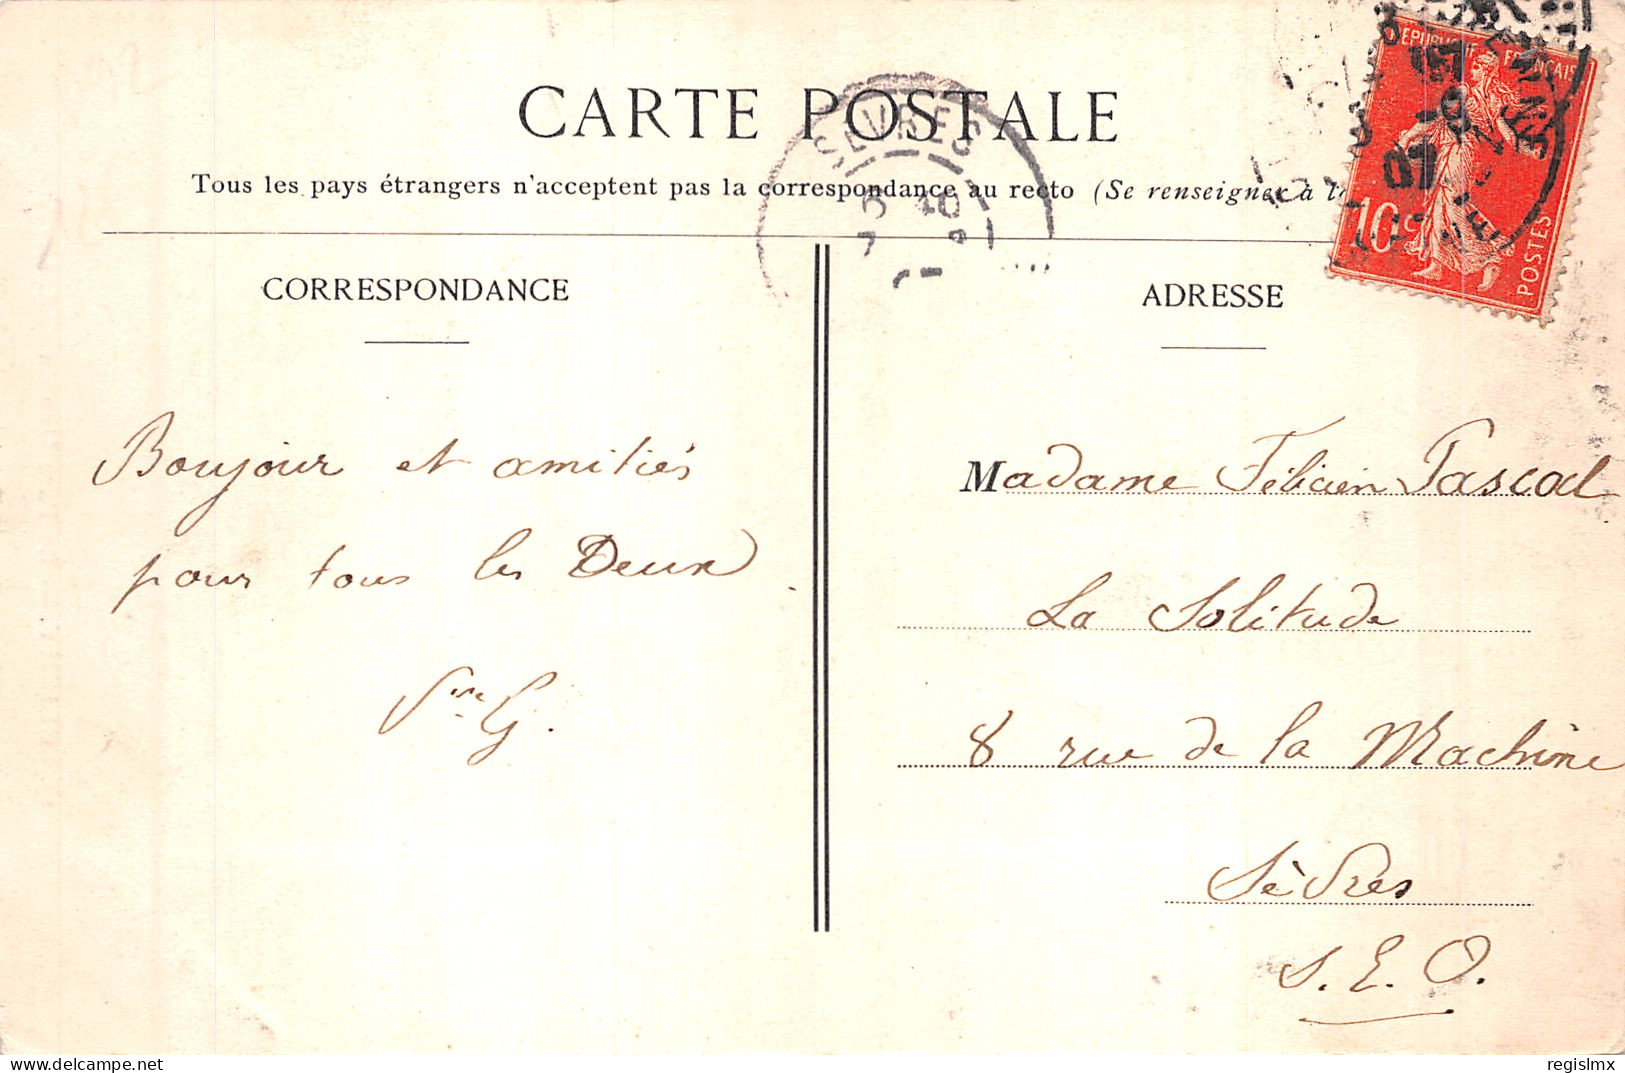 CARTE POSTALE
Tous les pays étrangers n'acceptent pas la correspondance au recto (Se renseigner à la
REPUBLIQUE FRANÇAISE
10c
POSTES
SEVRES
CORRESPONDANCE
ADRESSE
Bonjour et amitiés
pour tous les Deux.
G.
Madame Félicien Pascal
La Solitude
8 rue de la Machine
Sèvres
S. E. O.
Delcampe.net
regislmx